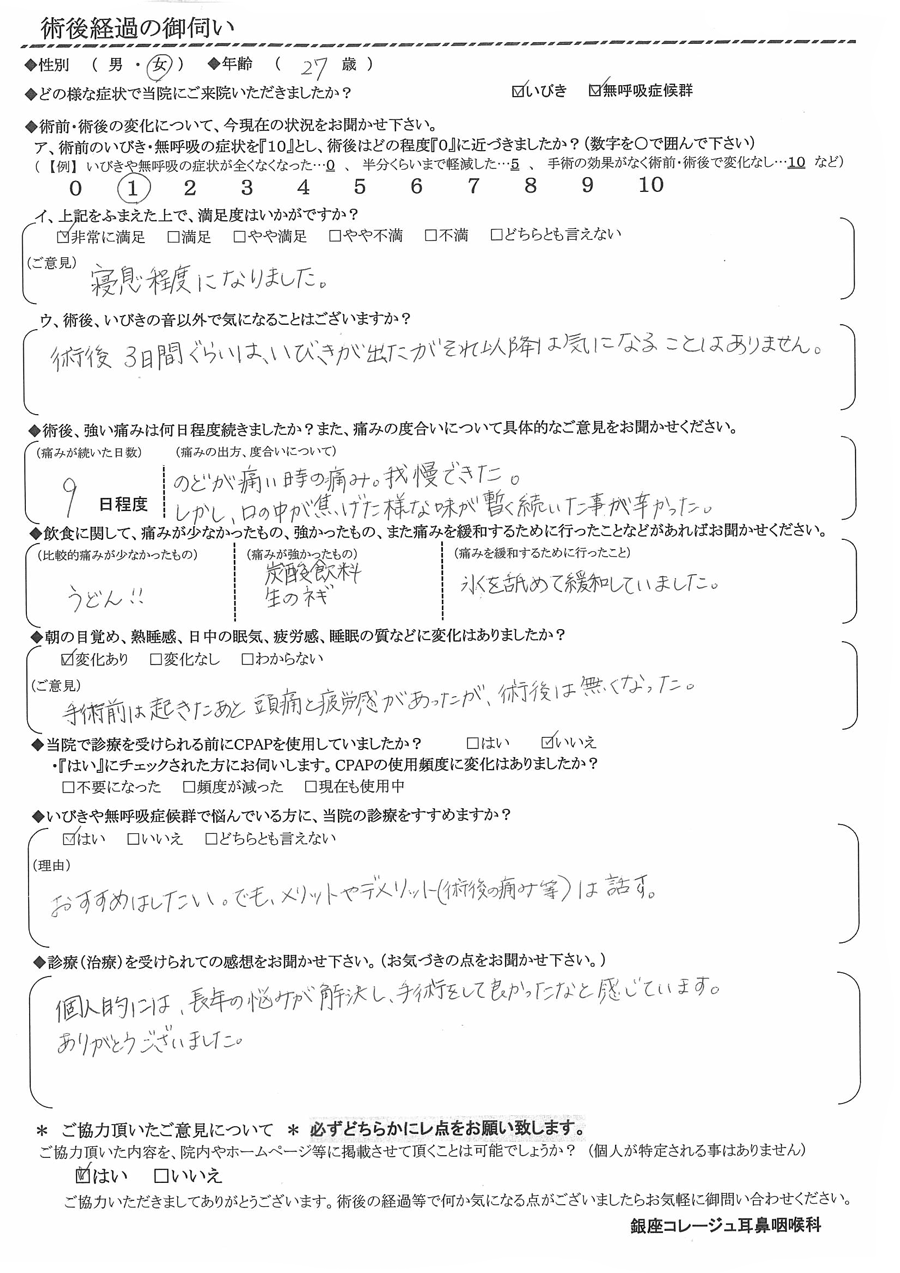 術後経過の御伺い
◆性別 ( 男 ・ 女 ) ◆年齢 ( 27 歳 )
◆どの様な症状で当院にご来院いただきましたか? ☑いびき ☑無呼吸症候群
◆術前・術後の変化について、今現在の状況をお聞かせ下さい。
ア、術前のいびき・無呼吸の症状を『10』とし、術後はどの程度『0』に近づきましたか?(数字を○で囲んで下さい)
(【例】いびきや無呼吸の症状が全くなくなった…0 、 半分くらいまで軽減した…5 、 手術の効果がなく術前・術後で変化なし…10 など)
0 1 2 3 4 5 6 7 8 9 10
イ、上記をふまえた上で、満足度はいかがですか?
☑非常に満足 □満足 □やや満足 □やや不満 □不満 □どちらとも言えない
(ご意見)
寝息程度になりました。
ウ、術後、いびきの音以外で気になることはございますか?
術後 3日間ぐらいは、いびきが出たがそれ以降は気になることはありません。
◆術後、強い痛みは何日程度続きましたか?また、痛みの度合いについて具体的なご意見をお聞かせください。
(痛みが続いた日数) (痛みの出方、度合いについて)
9 日程度
のどが痛い時の痛み。我慢できた。
しかし、口の中が焦げた様な味が暫く続いた事が辛かった。
◆飲食に関して、痛みが少なかったもの、強かったもの、また痛みを緩和するために行ったことなどがあればお聞かせください。
(比較的痛みが少なかったもの) (痛みが強かったもの) (痛みを緩和するために行ったこと)
うどん!!
炭酸飲料
生のネギ
氷を舐めて緩和していました。
◆朝の目覚め、熟睡感、日中の眠気、疲労感、睡眠の質などに変化はありましたか?
☑変化あり □変化なし □わからない
(ご意見)
手術前は起きたあと頭痛と疲労感があったが、術後は無くなった。
◆当院で診療を受けられる前にCPAPを使用していましたか? □はい ☑いいえ
・『はい』にチェックされた方にお伺いします。CPAPの使用頻度に変化はありましたか?
□不要になった □頻度が減った □現在も使用中
◆いびきや無呼吸症候群で悩んでいる方に、当院の診療をすすめますか?
☑はい □いいえ □どちらとも言えない
(理由)
おすすめはしたい。でも、メリットやデメリット(術後の痛み等)は話す。
◆診療(治療)を受けられての感想をお聞かせ下さい。(お気づきの点をお聞かせ下さい。)
個人的には、長年の悩みが解決し、手術をして良かったなと感じています。
ありがとうございました。
* ご協力頂いたご意見について * 必ずどちらかにレ点をお願い致します。
ご協力頂いた内容を、院内やホームページ等に掲載させて頂くことは可能でしょうか? (個人が特定される事はありません)
☑はい □いいえ
ご協力いただきましてありがとうございます。術後の経過等で何か気になる点がございましたらお気軽に御問い合わせください。
銀座コレージュ耳鼻咽喉科